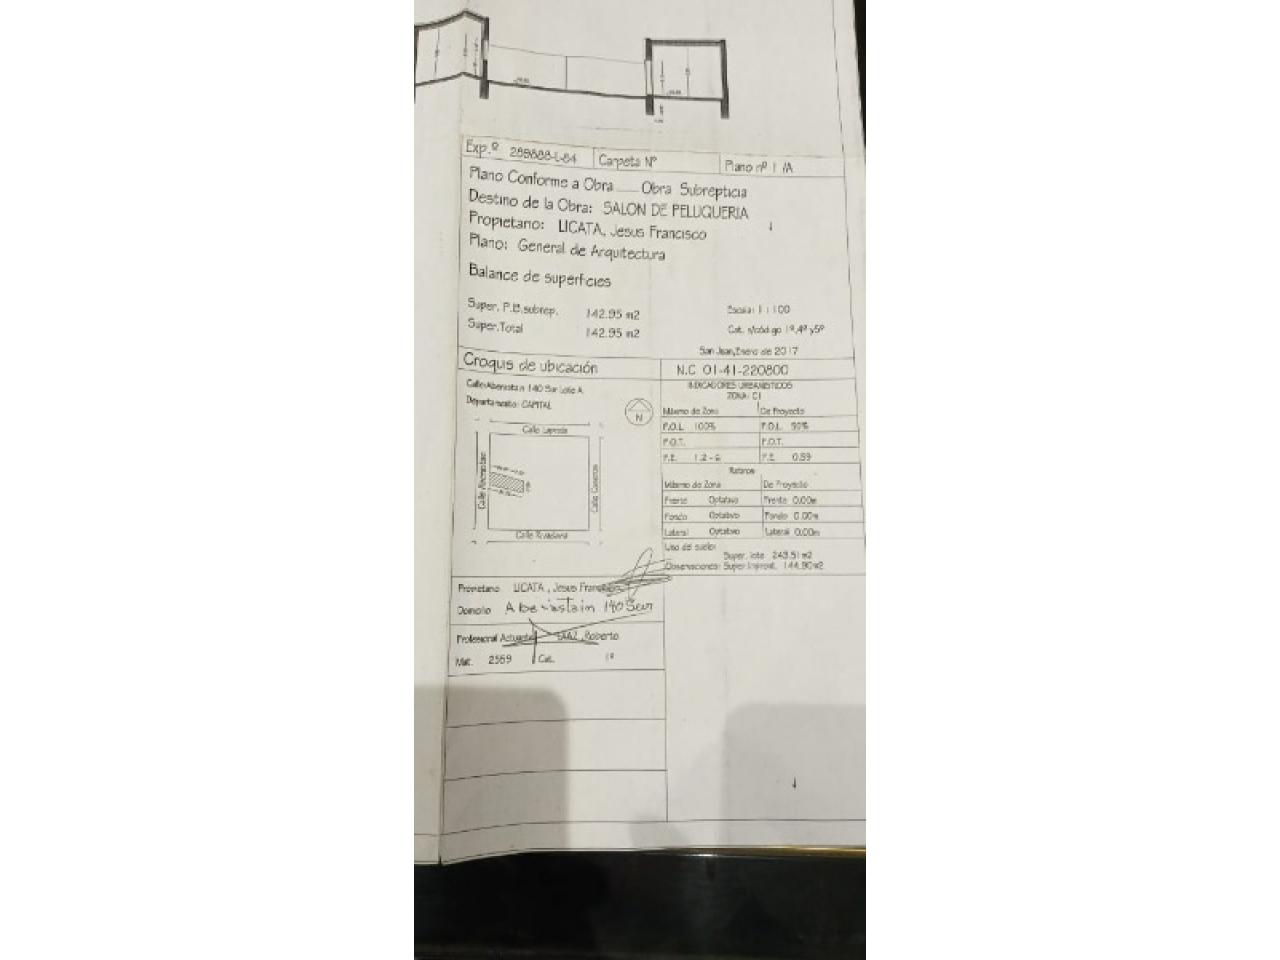 Exp.º 289888-L-84 Carpeta Nº Plano nº 1 /A
Plano Conforme a Obra ___ Obra Subrepticia
Destino de la Obra: SALON DE PELUQUERIA
Propietano: LICATA, Jesus Francisco
Plano: General de Arquitectura
Balance de superficies
Super. P.B.subrep. 142.95 m2
Super.Total 142.95 m2
Escala: 1 : 100
Cat. s/código 1º,4º y5º
San Juan,Enero de 2017
Croquis de ubicación
N.C 01-41-220800
Calle: Aberastain 140 Sur Lote A
Departamento: CAPITAL
N
Calle Laprida
Calle Aberastain
Calle Caseros
Calle Rivadavia
INDICADORES URBANISTICOS
ZONA: C1
Máximo de Zona De Proyecto
F.O.T.
F.O.T.
Retiros
Máximo de Zona De Proyecto
Frente Optativo Frente 0.00m
Fondo Optativo Fondo 0.00m
Lateral Optativo Lateral 0.00m
Uso del suelo:
Super. lote 243.51 m2
Observaciones: Super 144.90m2
Propietano LICATA , Jesus Francisco
Domicilio Aberastain 140 Sur
Profesional Actuante Roberto
Mat. 2559 Cat. 1º